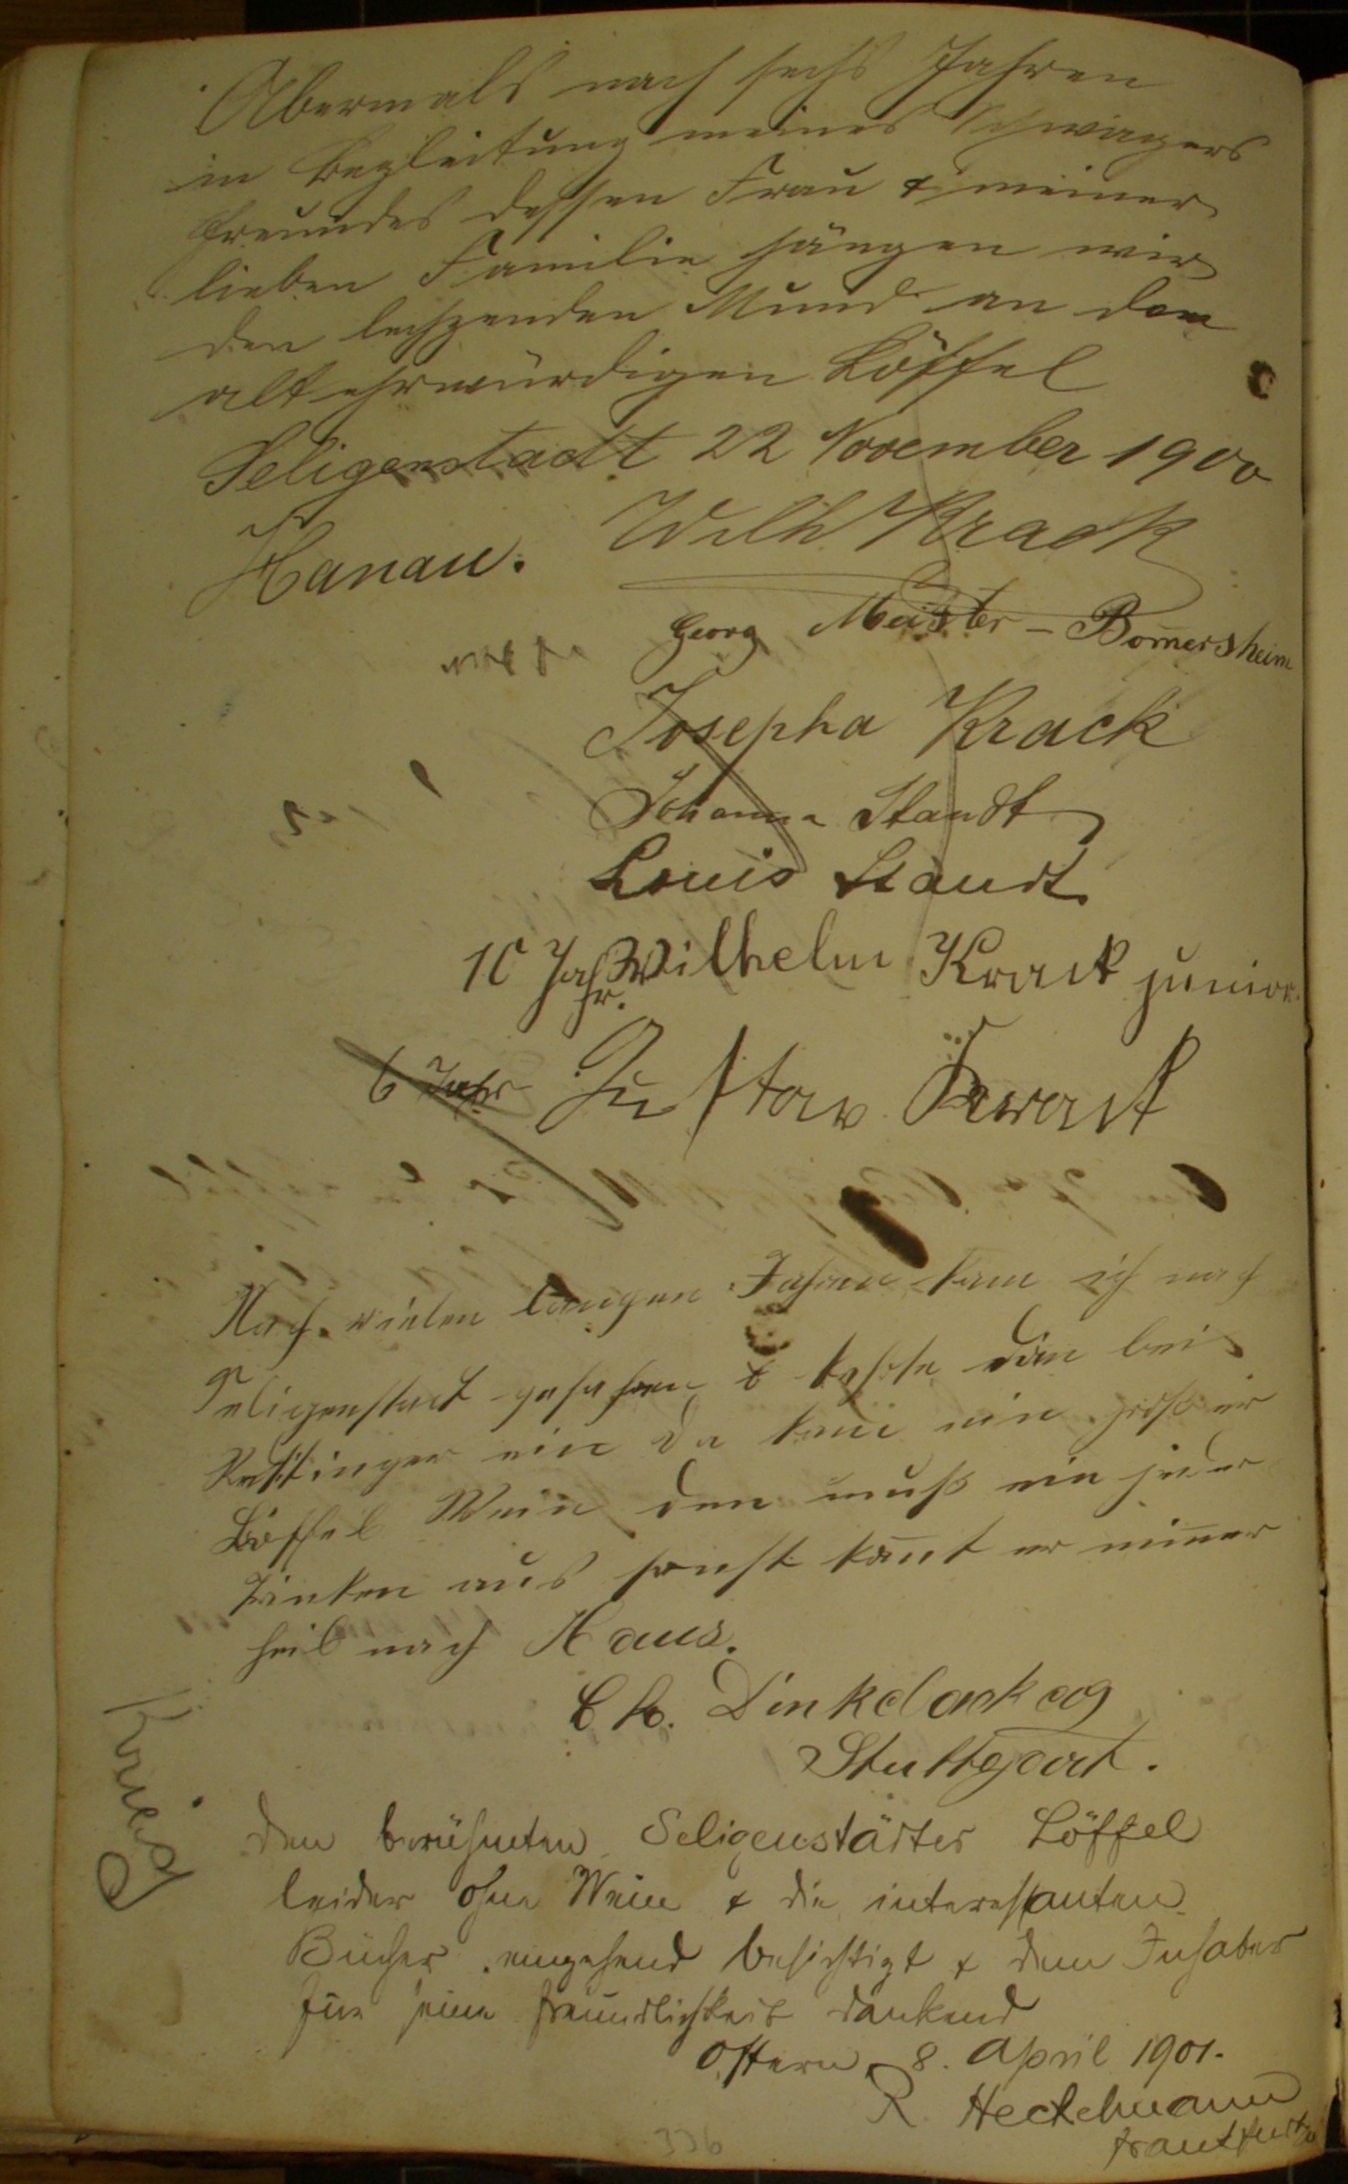 Abermals nach sechs Jahren
in Begleitung meines Schwagers
Freundes dessen Frau & meiner
lieben Familie hängen wir
den lechzenden Mund an dem
altehrwürdigen Löffel
Seligenstadt 22 November 1900
Hanau. Wilh Krack
Georg Meister - Bom̄ersheim
Josepha Krack
Johanna Staudt
Louis Staudt.
10 Jahr. Wilhelm Krack junior.
6 Jahr Gustav Krack
Nach vielen langen Jahren kam ich nach
Seligenstadt gefahren & kehrte dan bei
ein da kam ein großer
Löffel Wein den muß ein jeder
trinken aus sonst kom̄t er nim̄er
heil nach Haus.
Ch. Dinkelacker
Stuttgart.
König
Den berühmten Seligenstädter Löffel
leider ohne Wein & die interessanten
Bücher eingehend besichtigt & dem Inhaber
für seine Freundlichkeit dankend
Ostern 8. April 1901.
R. Heckelmann
Frankfurt
336